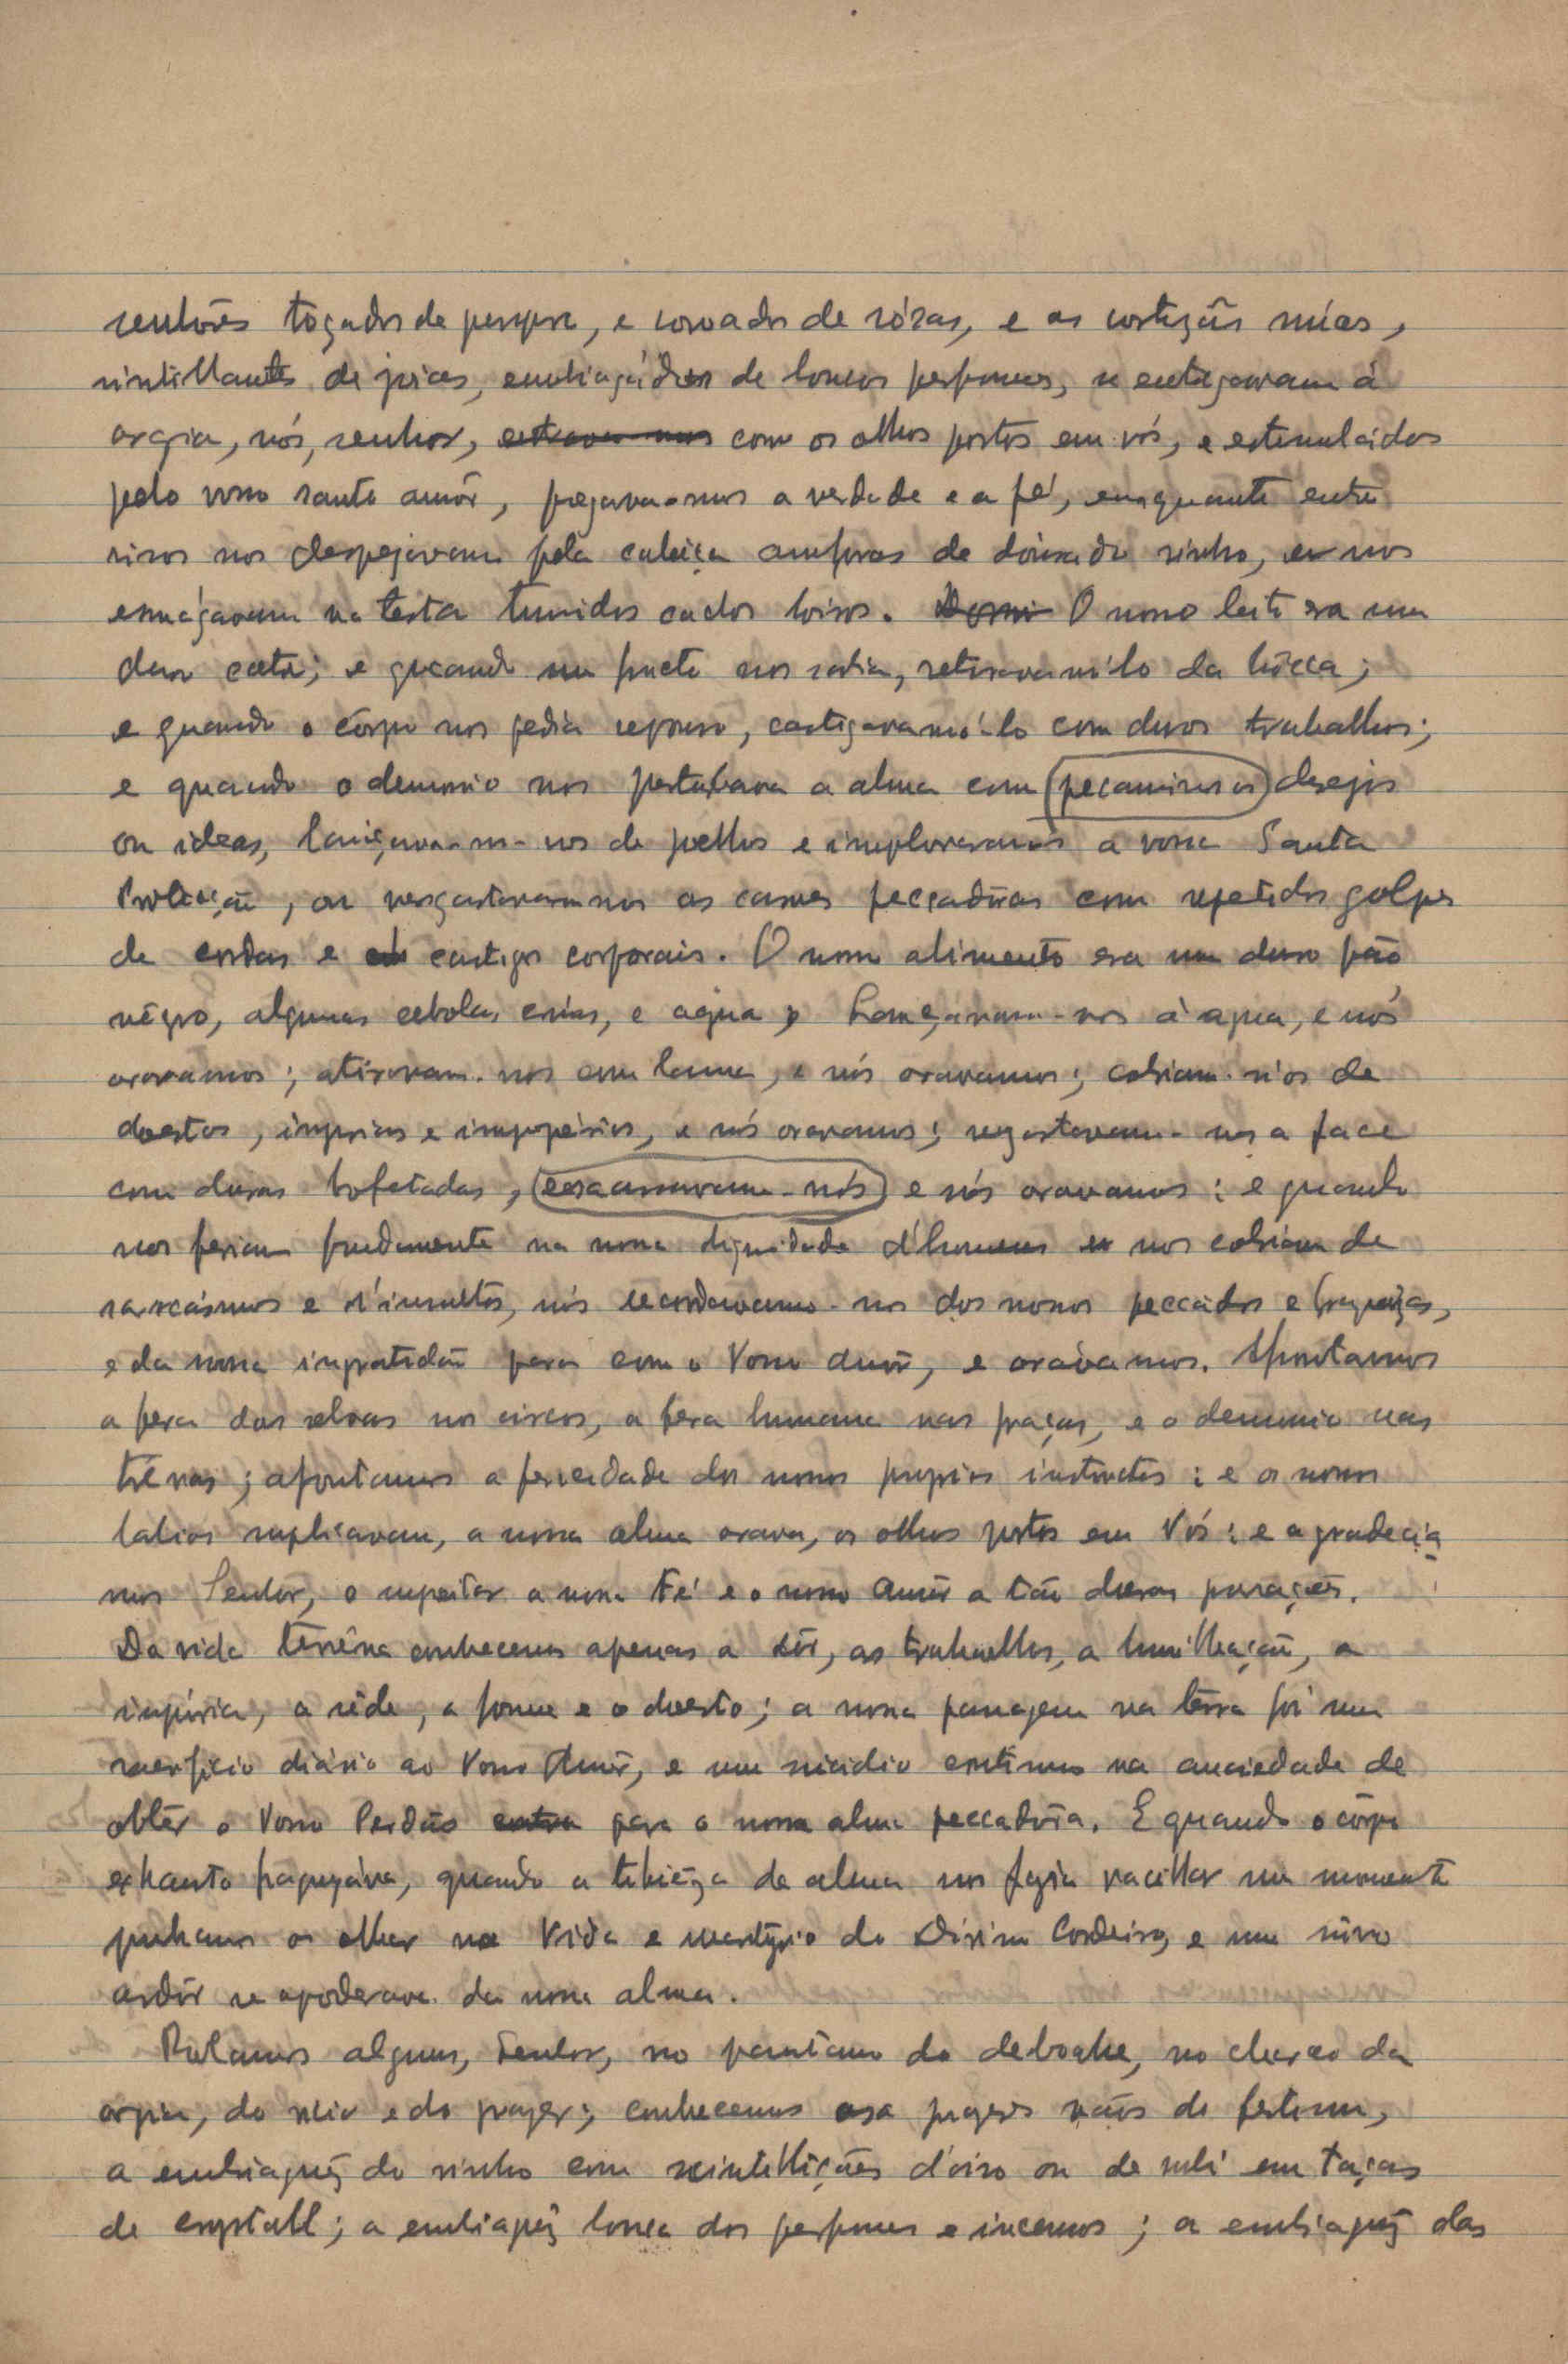 senhôres togados de purpura, e coroados de rósas, e as cortezãs núas,
sintillantes de joias, embriagádas de loucos perfumes, se entregavam á
orgia, nós, senhor, com os olhos postos em vós, e estimuládos
pelo vosso santo amôr, pregavamos a verdade e a fé, emquanto entre
risos nos despejavam pela cabeça amforas de doirado vinho, e nos
esmágavam na testa tumidos cachos loiros. O nosso leito era um
duro catre; e quando um fructo nos sabia, retiravamól-o da bôcca;
e quando o côrpo nos pedia repouso, castigavamó-lo com duros trabalhos;
e quando o demonio nos pertubava a alma com pecaminosos desejos
ou ideas, lançavam-nos de joelhos e imploravamos a vossa Santa
Protecção, ou vergastavamnos as carnes peccadôras com repetidos golpes
de cordas e castigos corporais. O nosso alimento era um duro pão
nêgro, algumas cebolas crúas, e agua; Lançávam-nos á agua, e nós
oravamos; atiravam-nos com lama, e nós oravamos; cobriam-nos de
doestos, injurias e impropérios, e nós oravamos; vergastavam-nos a face
com duras bofetadas, e nós oravamos: e quando
nos feriam fundamente na nossa dignidade d'homens e nos cobriam de
sarcásmos e d'insultos, nós recordavamo-nos dos nossos peccádos e fraquezas,
e da nossa ingratidão para com o Vosso Amôr, e orávamos. Afrontamos
a fera das selvas nos circos, a fera humana nas praças, e o demonio nas
trévas; afrontamos a ferocidade dos nossos proprios instinctos: e os nossos
labios suplicavam, a nossa alma orava, os olhos postos em Vós: e agradecia-
mos Senhôr, o sujeitar a nossa Fé e o nosso Amôr a tão duras provações.
Da vida terrêna conhecemos apenas a dôr, os trabalhos, a humilhação, a
injúria, a sêde, a fome e o doesto; a nossa passagem na terra foi um
sacrificio diário ao Vosso Amôr, e um suicidio continuo na anciedade de
obtêr o Vosso Perdão para a nossa alma peccadôra. E quando o côrpo
exhausto fraquejáva, quando a tibiêza da alma nos fazia vacillar um momento
punhamos os olhos na Vida e martyrio do Divino Cordeiro, e um nôvo
ardôr se apoderava da nossa alma.
Rolamos alguns, Senhor, no pantano do deboche, no charco da
orgia, do vicio e do prazer; conhecemos os prazeres vãos do festim,
a embriaguêz do vinho com scintillições d'oiro ou de rubí em taças
de crystall; a embriaguêz louca dos perfumes e incensos; a embriaguêz das